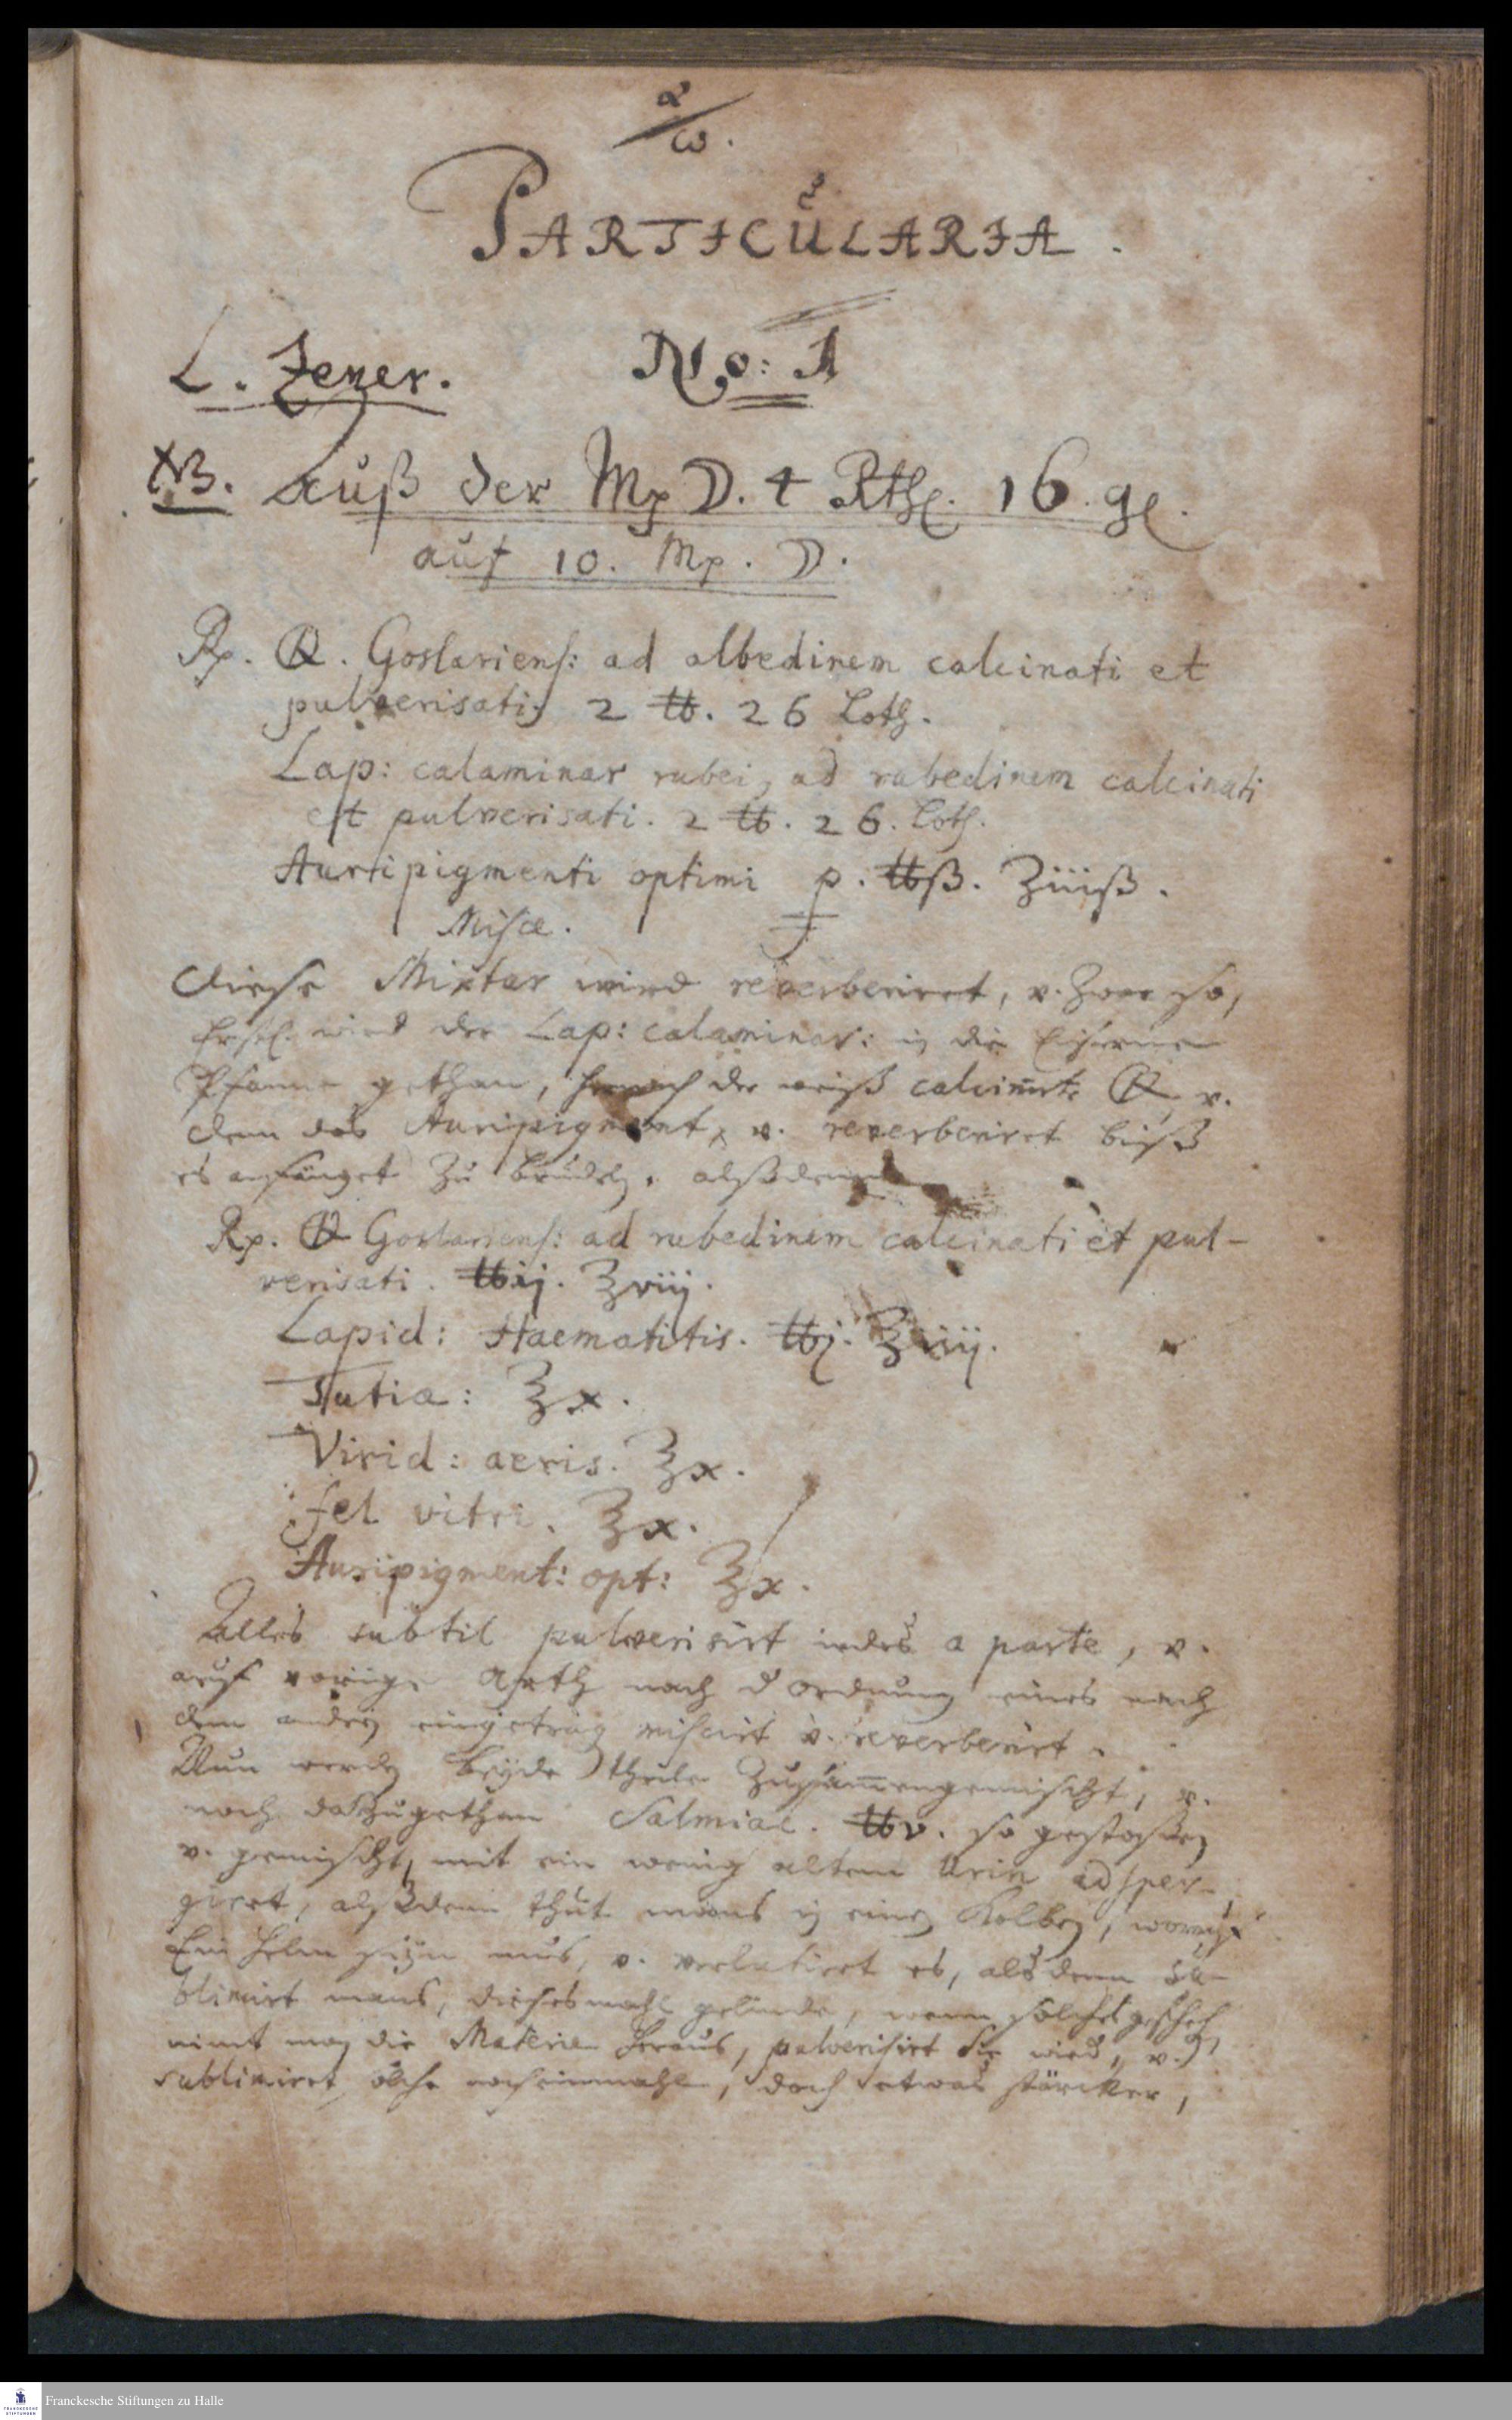 α/ω.
PARTICULARIA.
No: 1
NB. Auß der Mp ☽. 4 Rthl. 16. gl.
auf 10. Mp. ☽.
Rp. Goslariens: ad albedinem calcinati et
pulverisati 2 ℔. 26 Loth.
Lap: calaminar rubei, ad rubedinem calcinati
et pulverisati. 2 ℔. 26. Loth.
Auripigmenti optimi p. ℔ß. ℥iiiß.
Misce.
Diese Mixtur wird reverberiret, v. zwar so,
Erstl. wird der Lap: calaminar: in die Eiserne
Pfanne gethan, hernach der weiß calcinirte v.
denn das Auripigment, v. reverberiret biß
es anfänget zu brudeln. alßdenn
Rp. Goslariens: ad rubedinem calcinati et pul-
verisati. ℔ij. ℥viij.
Lapid: Haematitis. ℔j. ℥viij.
Tutia: ℥x.
Virid: aeris. ℥x.
fel vitri. ℥x.
Auripigment: opt: ℥x.
Alles subtil pulverisirt jedes a parte, v.
auf vorige Arth nach d ordnung eines nach
dem andern eingetrag miscirt v. reverberirt.
Nun werden beyde theile zusam̄engemischt, v.
noch dazugethan Salmiac. ℔v. so gestoßen
v. gemischt, mit ein wenig altem Urin adsper-
giret, alßdenn thut mans in einen Kolben, worauf
Ein Helm seyn mus, v. verlutiret es, alsdenn su-
blimirt mans, dießesmahl gelinde, wenn solches gescheh
nimt man die Materie heraus, pulverisirt sie wied, v.
sublimiret solche nocheinmahl, doch etwas stärcker,
Franckesche Stiftungen zu Halle